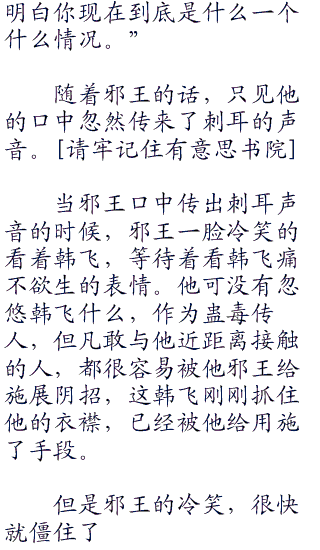 明白你现在到底是什么一个
什么情况。”
随着邪王的话，只见他
的口中忽然传来了刺耳的声
音。[请牢记住有意思书院]
当邪王口中传出刺耳声
音的时候，邪王一脸冷笑的
看着韩飞，等待着看韩飞痛
不欲生的表情。他可没有忽
悠韩飞什么，作为蛊毒传
人，但凡敢与他近距离接触
的人，都很容易被他邪王给
施展阴招，这韩飞刚刚抓住
他的衣襟，已经被他给用施
了手段。
但是邪王的冷笑，很快
就僵住了